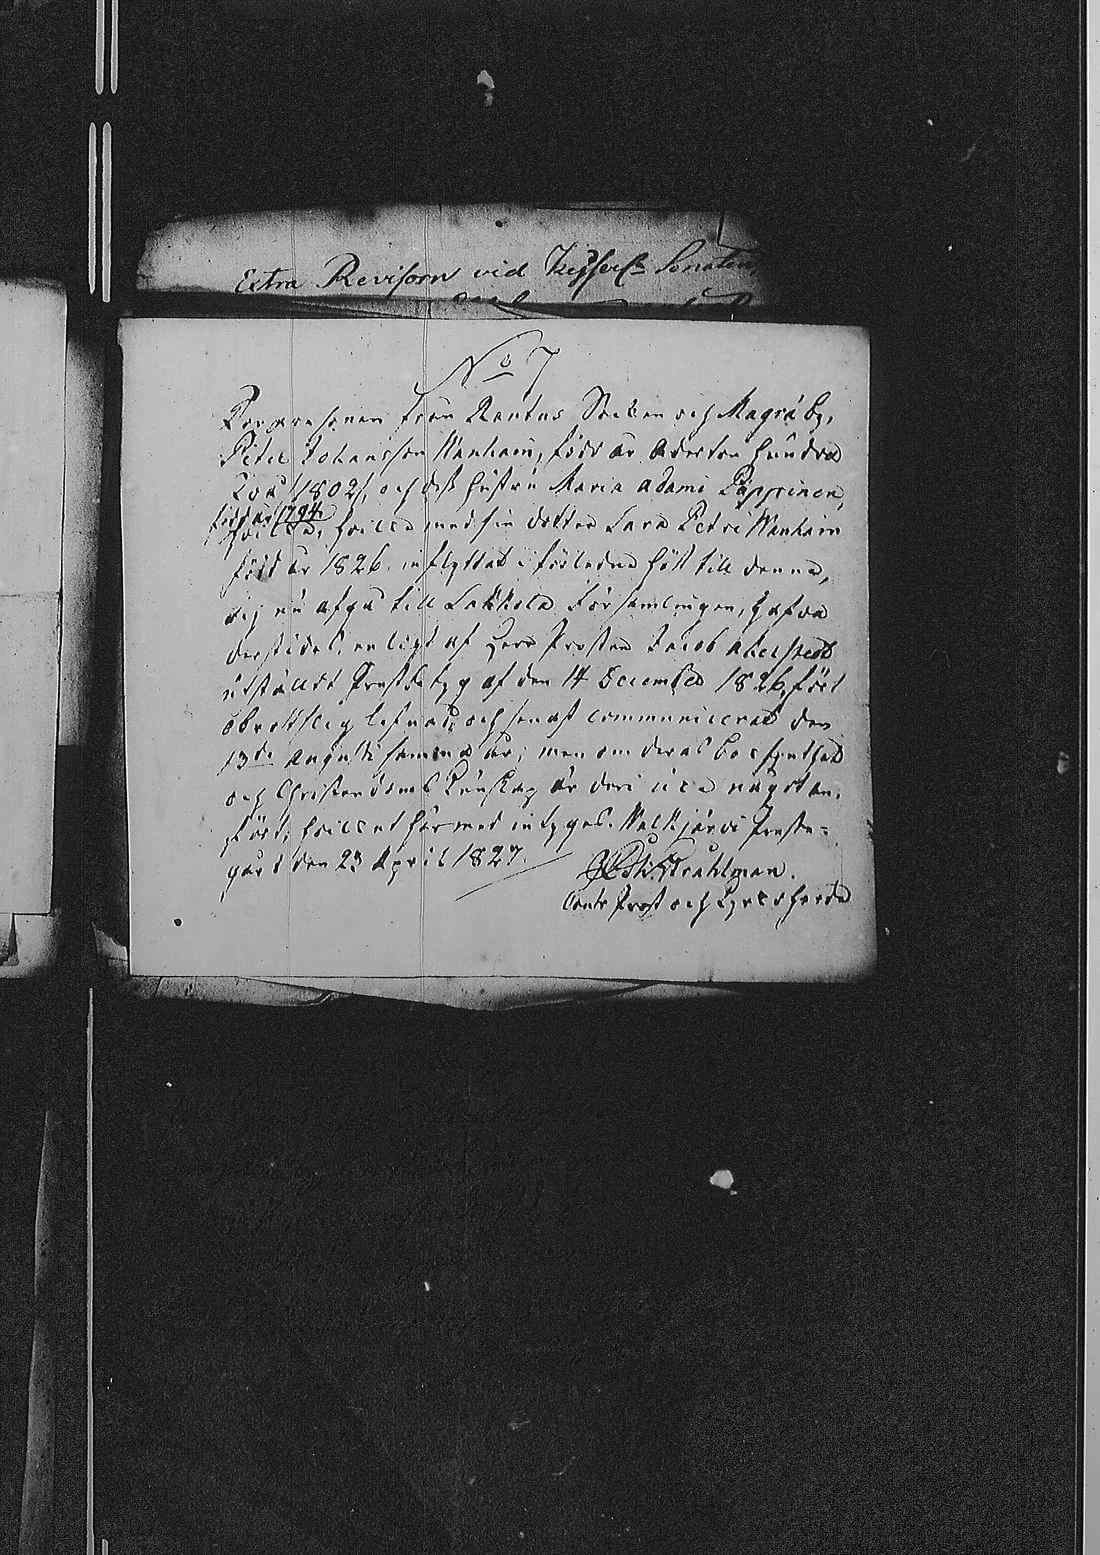 Extra Revisorn vid Kejserl. Senaten,
No 7
Torparesonen från Rautus Socken och Magrå by,
Peter Johansson Wanhain, född år Aderton hundra
två /1802/, och dess hustru Maria Adami Päppinen,
född år 1794
hvilka, hvilka med sin dotter Sara Petri Wanhain
född år 1826. inflyttat i förledne höst till denna,
och nu afgå till Sakkola Församlingen, hafva
derstädes, enligt af Herr Prosten Jacob
utställdt Prestbetyg af den 14 December 1826, fört
obrottslig lefnad, och senast communicerat den
13de Augusti samma år; men om deras
och Christendoms Kunskap är deri icke något an-
fört, hvilket härmed intygas. Walkjärvi Preste-
gård den 23 April 1827.
Strahlman.
Contr Prost och Kyrkoherde